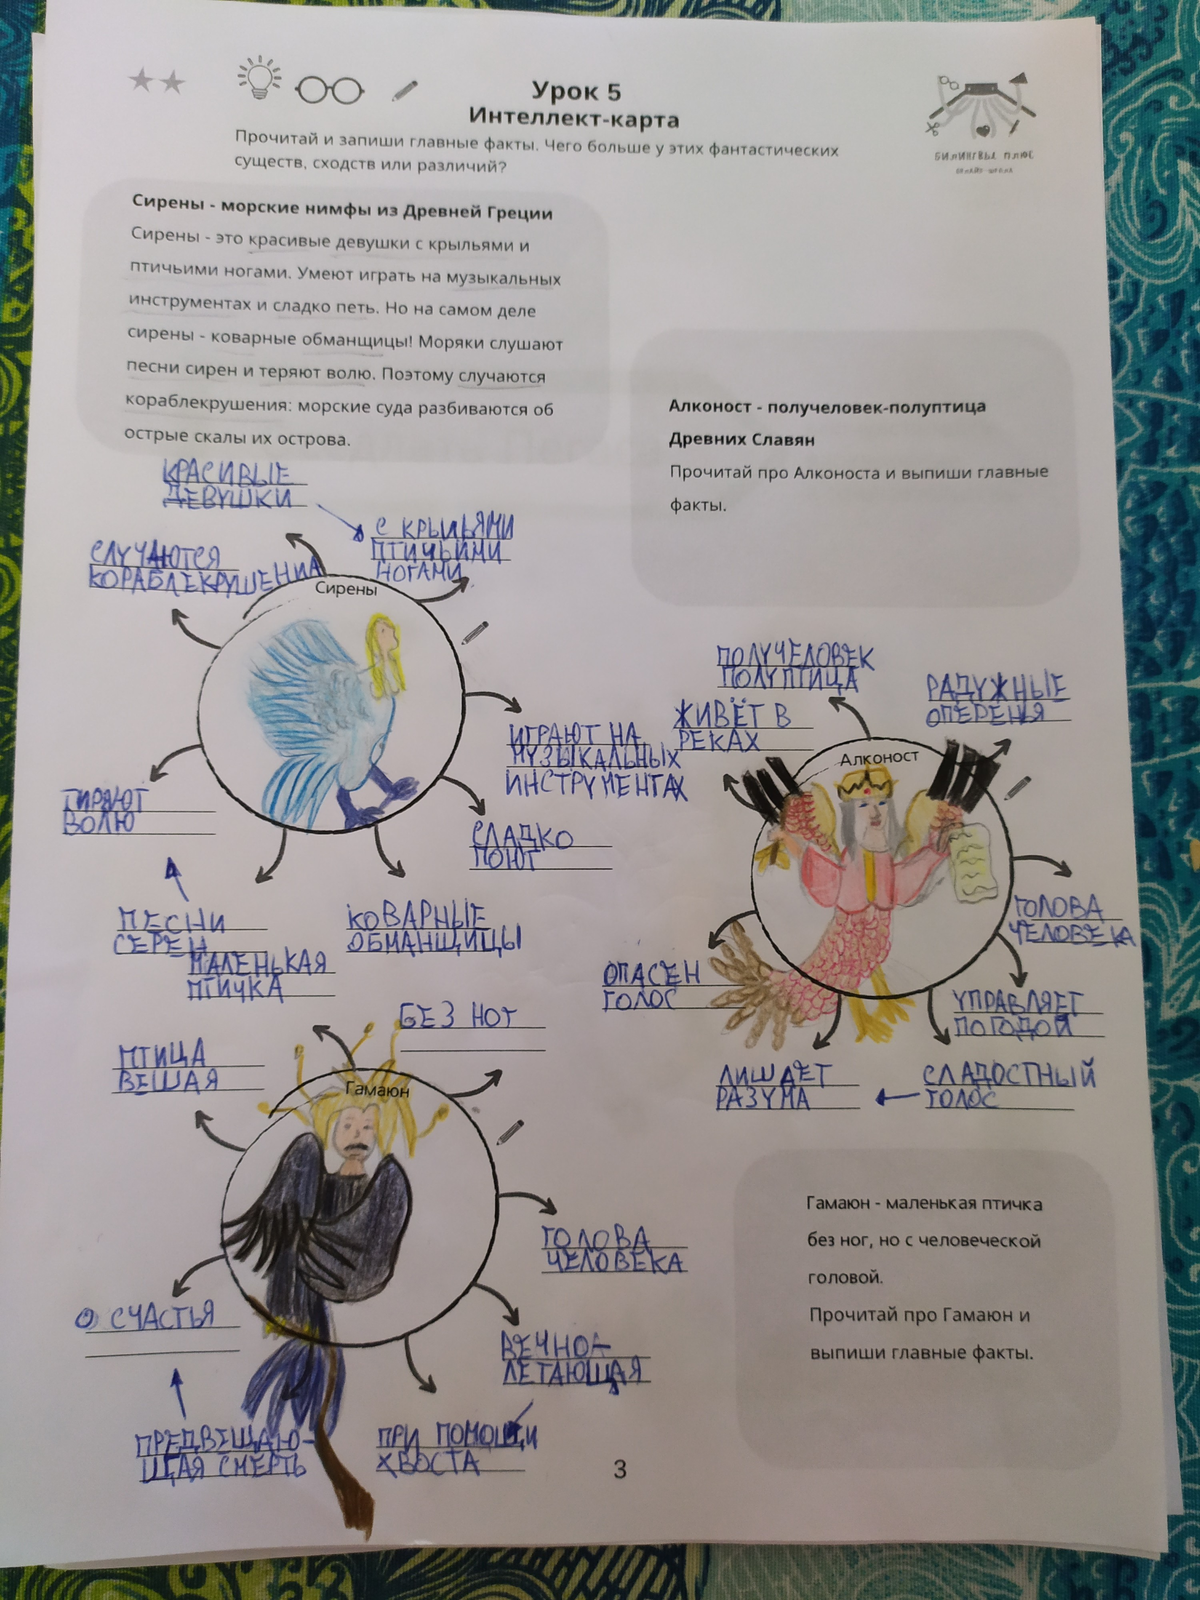 Урок 5
Интеллект-карта
Прочитай и запиши главные факты. Чего больше у этих фантастических
существ, сходств или различий?
БИЛИНГВЫ ПЛЮС
ОНЛАЙН-ШКОЛА
Сирены - морские нимфы из Древней Греции
Сирены - это красивые девушки с крыльями и
птичьими ногами. Умеют играть на музыкальных
инструментах и сладко петь. Но на самом деле
сирены - коварные обманщицы! Моряки слушают
песни сирен и теряют волю. Поэтому случаются
кораблекрушения: морские суда разбиваются об
острые скалы их острова.
Алконост - получеловек-полуптица
Древних Славян
Прочитай про Алконоста и выпиши главные
факты.
КРАСИВЫЕ
ДЕВУШКИ
С КРЫЛЬЯМИ
ПТИЧЬИМИ
НОГАМИ
СЛУЧАЮТСЯ
КОРАБЛЕКРУШЕНИЯ
Сирены
ИГРАЮТ НА
МУЗЫКАЛЬНЫХ
ИНСТРУМЕНТАХ
СЛАДКО
ПОЮТ
ТИРЯЮТ
ВОЛЮ
ПЕСНИ
СЕРЕН
КОВАРНЫЕ
ОБМАНЩИЦЫ
ПОЛУЧЕЛОВЕК
ПОЛУПТИЦА
РАДУЖНЫЕ
ОПЕРЕНЯ
ЖИВЁТ В
РЕКАХ
Алконост
ГОЛОВА
ЧЕЛОВЕКА
УПРАВЛЯЕТ
ПОГОДОЙ
ОПАСЕН
ГОЛОС
ЛИШАЕТ
РАЗУМА
СЛАДОСТНЫЙ
ГОЛОС
МАЛЕНЬКАЯ
ПТИЧКА
БЕЗ НОГ
ПТИЦА
ВЕШАЯ
Гамаюн
ГОЛОВА
ЧЕЛОВЕКА
ВЕЧНО-
ЛЕТАЮЩАЯ
О СЧАСТЬЯ
ПРЕДВЕЩАЮ-
ЩАЯ СМЕРТЬ
ПРИ ПОМОЩИ
ХВОСТА
Гамаюн - маленькая птичка
без ног, но с человеческой
головой.
Прочитай про Гамаюн и
выпиши главные факты.
3